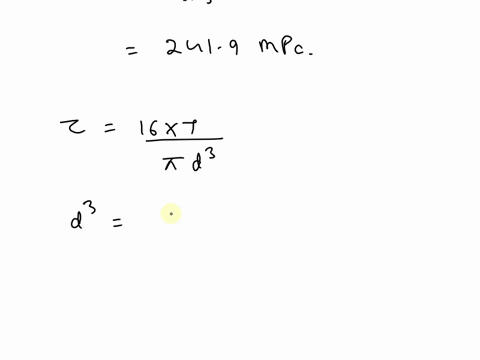 = 241.9 MPc.
τ = 16 x T
π d³
d³ =